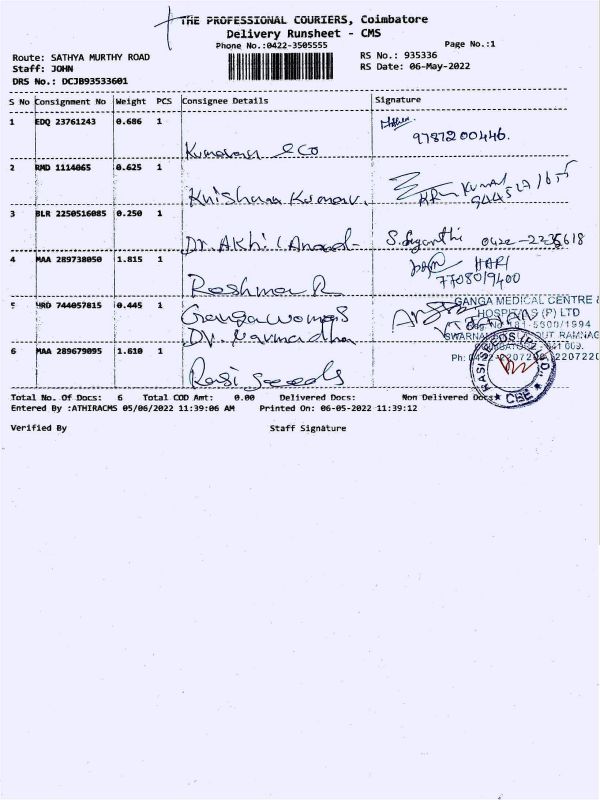 THE PROFESSIONAL COURIERS, Coimbatore
Delivery Runsheet - CMS
Phone No.:0422-3505555
Page No.:1
Route: SATHYA MURTHY ROAD
RS No.: 935336
Staff: JOHN
RS Date: 06-May-2022
DRS No.: DCJB93533601
S No Consignment No Weight PCS Consignee Details Signature
1 EDQ 23761243 0.686 1
9787200446.
Kumaran eco
2 RMD 1114065 0.625 1
Krishna Kumar.
KUMAR
3 BLR 2250516085 0.250 1
Dr. Akhil Anand
S. Suganthi 0422-2235618
4 MAA 289738050 1.815 1
HARI
7708019400
Reshma R
5 HRD 744057815 0.445 1
Ganga womens
Dr. Narmadha
GANGA MEDICAL CENTRE &
HOSPITALS (P) LTD
181-5600/1994
6 MAA 289679095 1.610 1
Rasi seeds
CBE
Total No. Of Docs: 6 Total COD Amt: 0.00 Delivered Docs: Non Delivered Docs:
Entered By :ATHIRACMS 05/06/2022 11:39:06 AM Printed On: 06-05-2022 11:39:12
Verified By Staff Signature